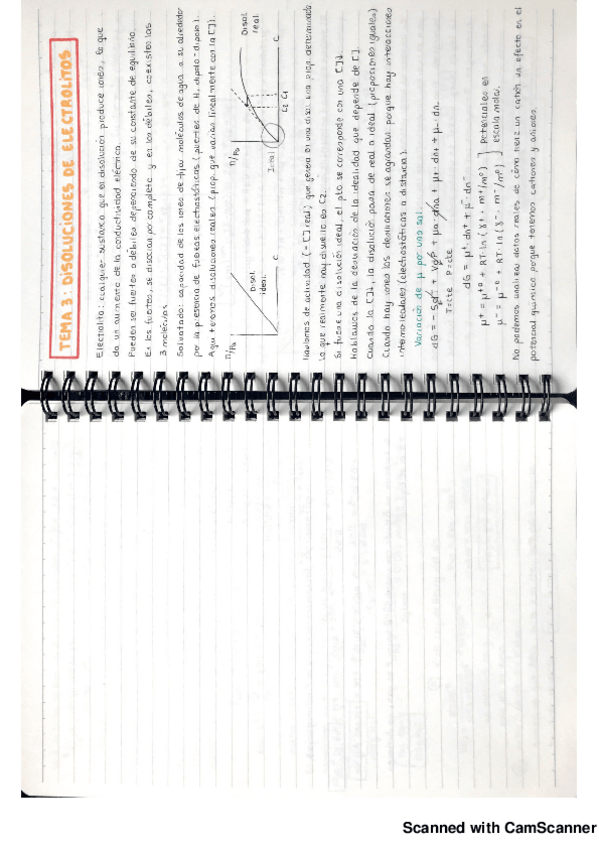 TEMA 3: DISOLUCIONES DE ELECTROLITOS
Electrolito: cualquier sustancia que en disolución produce iones, lo que
da un aumento de la conductividad eléctrica.
Pueden ser fuertes o débiles dependiendo de su constante de equilibrio.
En los fuertes, se disocian por completo y en los débiles, coexisten las
3 moléculas.
Solvatado: capacidad de los iones de fijar moléculas de agua a su alrededor
por la presencia de fuerzas electrostáticas (puentes de H, dipolo-dipolo).
Aquí tenemos disoluciones reales (prop. que varían linealmente con la []).
π/Ps
Disol.
ideal
C
π/Ps
Disol.
real
Ideal
C2 C1
C
Hablamos de actividad (= [] real), que genera en una disol. una prop. determinada
Lo que realmente hay disuelto es C2.
Si fuese una disolución ideal, el pto se corresponde con una []1.
Hablamos de la desviación de la idealidad que depende de [].
Cuando la []↓, la disolución pasa de real a ideal (proporciones iguales)
Cuando hay iones las desviaciones se agrandan porque hay interacciones
intermoleculares (electrostáticas a distancia).
Variación de μ por una sal
dG = -SdT + VdP + μa·dna + μ+·dn+ + μ-·dn-
T=cte P=cte
dG = μ+·dn+ + μ-·dn-
μ+ = μ+0 + RT·ln (γ+·m+/m0)
μ- = μ-0 + RT·ln (γ-·m-/m0)
potenciales en
escala molal.
No podemos analizar datos reales de cómo tiene un catión un efecto en el
potencial químico porque tenemos cationes y aniones.
Scanned with CamScanner